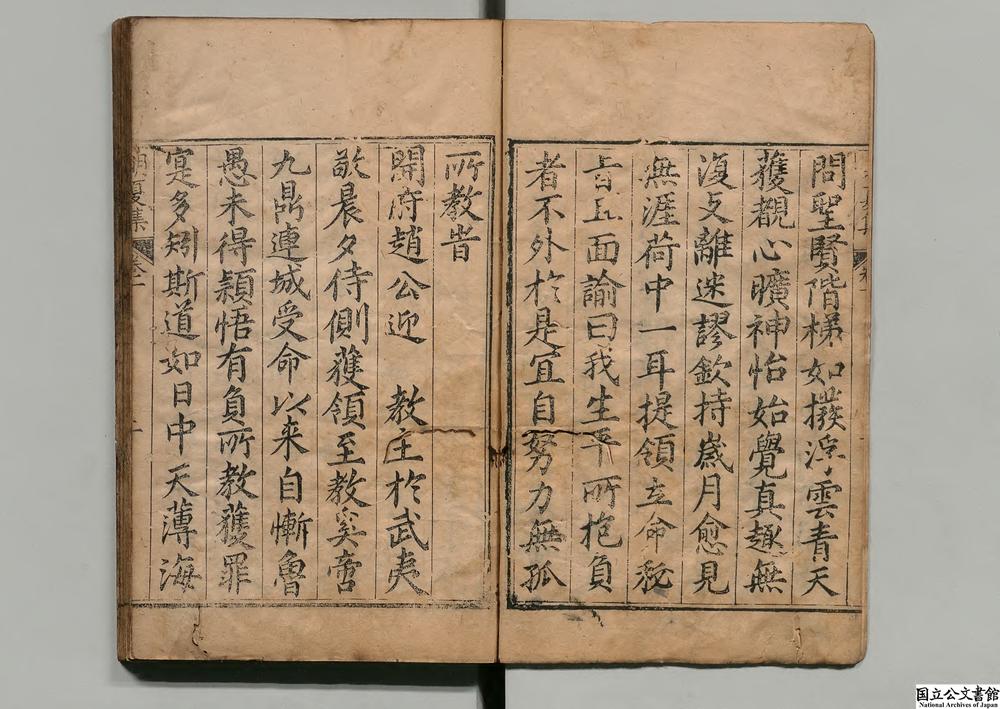 問聖賢階梯如撥浮雲青天
獲覩心曠神怡始覺真趣無
復支離迷謬欽持歲月愈見
無涯荷中一耳提領立命稅
旨且面諭曰我生平所抱負
者不外於是宜自努力無孤
所教昔
開府趙公迎　教主於武夷
敝晨夕侍側獲領至教奚啻
九鼎連城受命以来自慚魯
愚未得穎悟有負所教獲罪
寔多矧斯道如日中天薄海
夏集
卷一
国立公文書館
National Archives of Japan